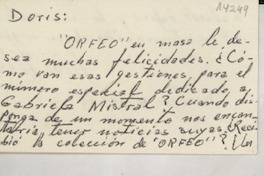 14249
Doris:
"ORFEO" en masa le de-
sea muchas felicidades. ¿Có-
mo van esas gestiones, para el
número especial dedicado, a
Gabriela Mistral? Cuando dis-
ponga de un momento nos encan-
taría, tener noticias suyas. ¿Reci-
bió la colección de "ORFEO"? ¿Las